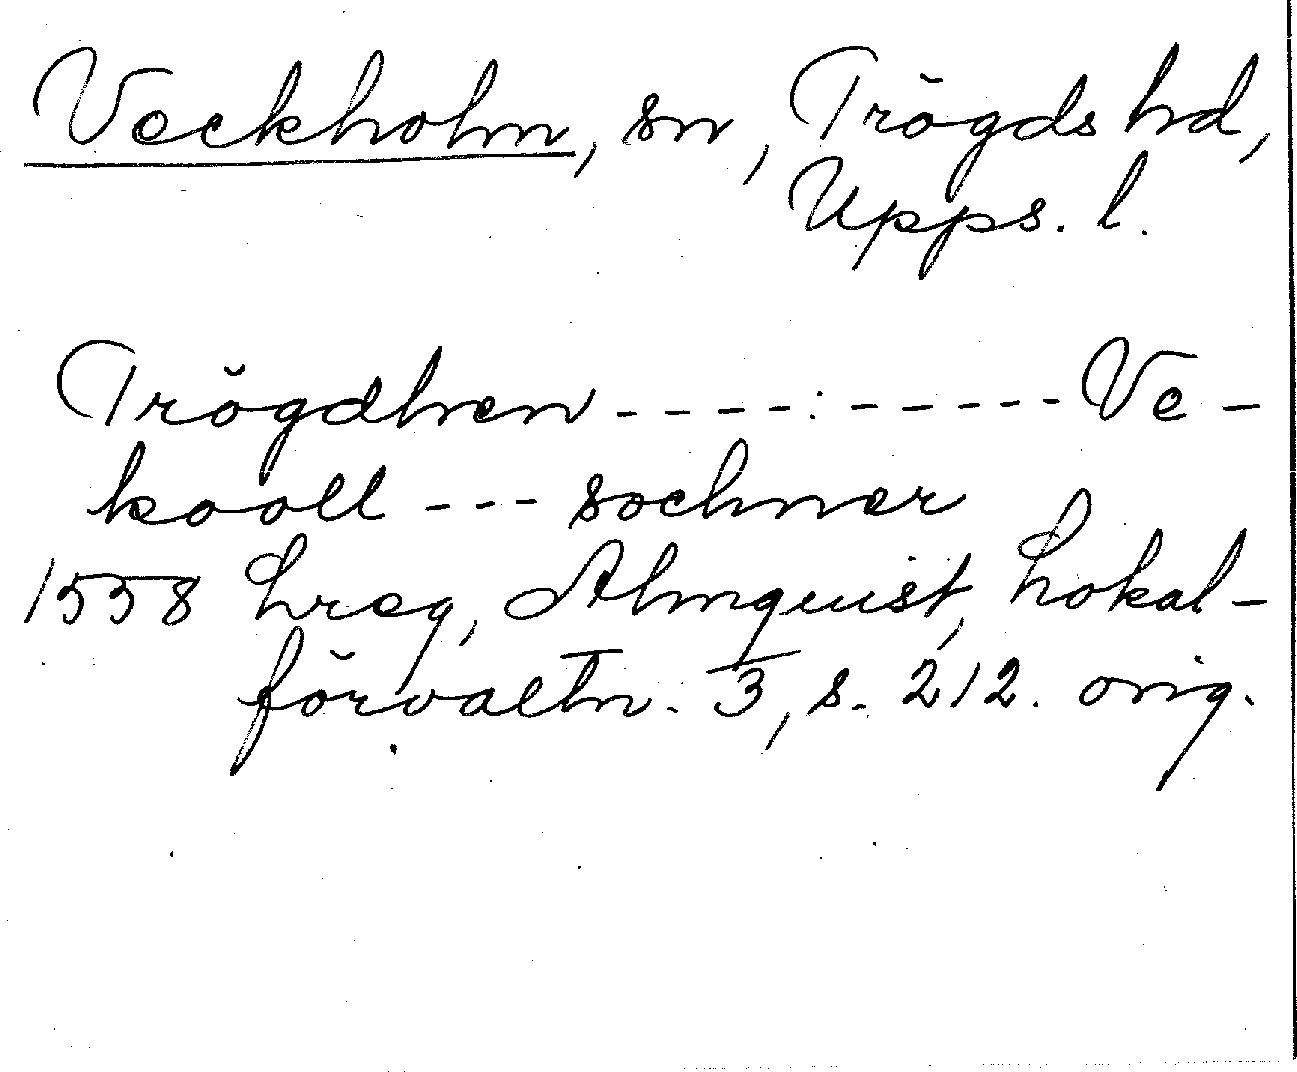 Veckholm, sn, Trögds hd,
Upps. l.
Trögdhen ----:----- Ve-
kooll --- sochner
1558 Lreg, Almquist, Lokal-
förvaltn. 3, s. 212. orig.